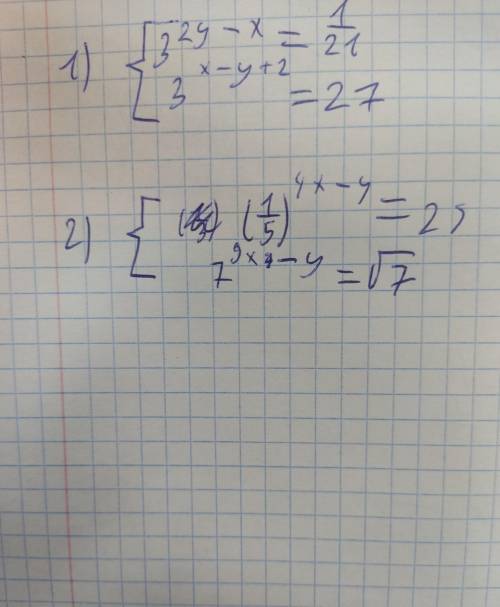 1) { 3^{2y-x} = 1/21
3^{x-y+2} = 27
2) { (1/5)^{4x-y} = 25
7^{9x-y} = √7